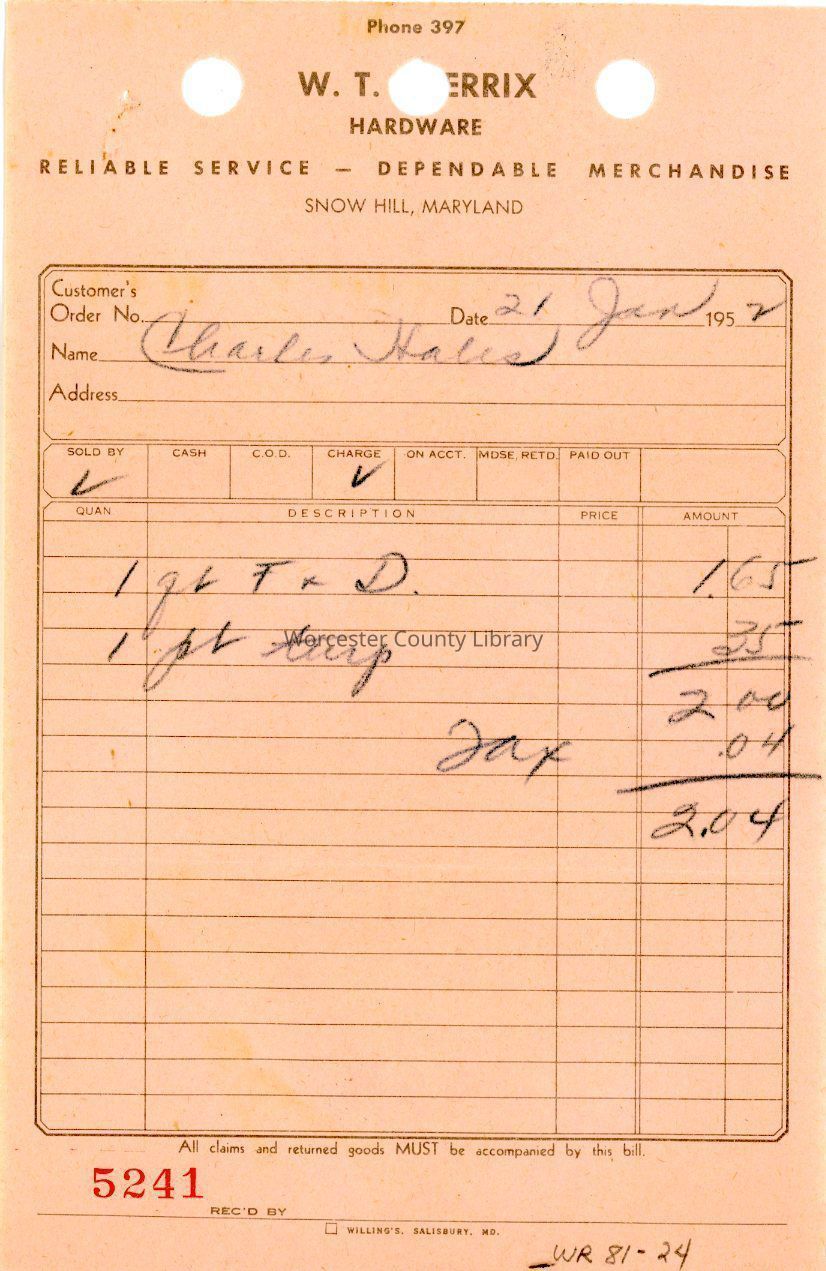 Phone 397
W. T. ERRIX
HARDWARE
RELIABLE SERVICE — DEPENDABLE MERCHANDISE
SNOW HILL, MARYLAND
Customer's
Order No. Date 21 Jan 1952
Name Charles Hales
Address
SOLD BY CASH C.O.D. CHARGE ON ACCT. MDSE. RETD. PAID OUT
✓ ✓
QUAN DESCRIPTION PRICE AMOUNT
1 qt F & D. 1.65
1 pt turp 35
Worcester County Library
2 00
Tax .04
2.04
All claims and returned goods MUST be accompanied by this bill.
5241
REC'D BY
WILLING'S, SALISBURY, MD.
WR 81-24